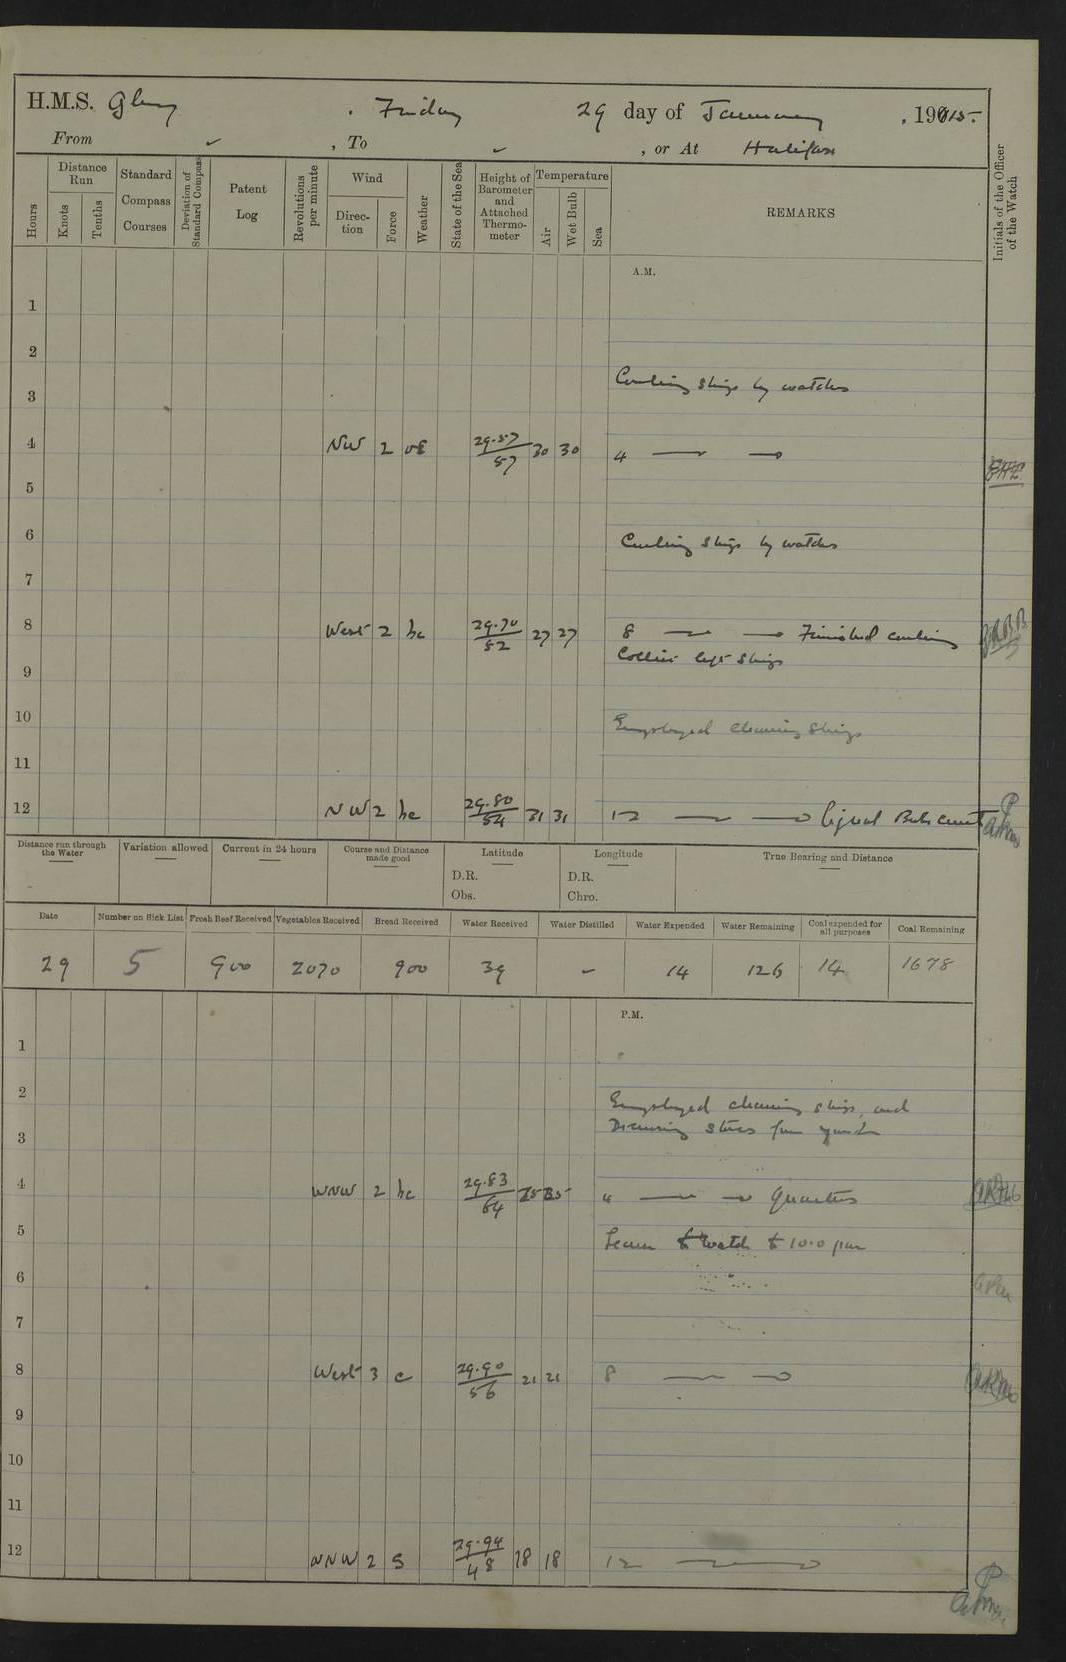 H.M.S. Glory, Friday 29 day of January, 1915.
From ✓, To ✓, or At Halifax
Hours
Distance Run
Knots
Tenths
Standard Compass Courses
Deviation of Standard Compass
Patent Log
Revolutions per minute
Wind
Direction
Force
Weather
State of the Sea
Height of Barometer and Attached Thermometer
Temperature
Air
Wet Bulb
Sea
REMARKS
Initials of the Officer of the Watch
A.M.
1
2
Coaling ship by watches
3
4 NW 2 29.57/57 30 30 4 — —
5
6 Coaling ship by watches
7
8 West 2 bc 29.70/52 27 27 8 — — Finished coaling
Collier left ship
9
10 Employed cleaning ship
11
12 NW 2 bc 29.80/54 31 31 12 — —
Distance run through the Water
Variation allowed
Current in 24 hours
Course and Distance made good
Latitude
D.R.
Obs.
Longitude
D.R.
Chro.
True Bearing and Distance
Date Number on Sick List Fresh Beef Received Vegetables Received Bread Received Water Received Water Distilled Water Expended Water Remaining Coal expended for all purposes Coal Remaining
29 5 900 2070 900 39 - 14 126 14 1678
P.M.
1
2 Employed cleaning ship, and
Drawing stores from yard
3
4 WNW 2 bc 29.83/64 25 25 4 — — Quarters
5 Leave to watch to 10.0 pm
6
7
8 West 3 c 29.90/56 21 21 8 — —
9
10
11
12 NNW 2 29.94/48 18 18 12 — —